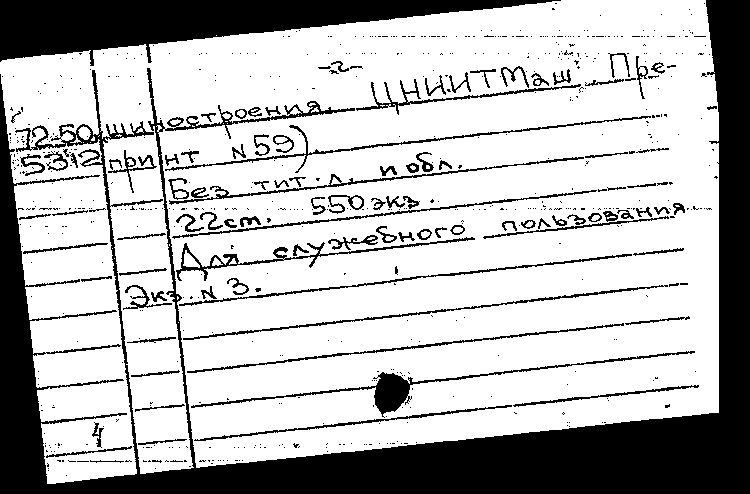 -2-
72-50 шиностроения. ЦНИИТМаш. Пре-
5312 принт N 59).
Без тит. л. и обл.
22 см. 550 экз.
Для служебного пользования
Экз. N 3.
4